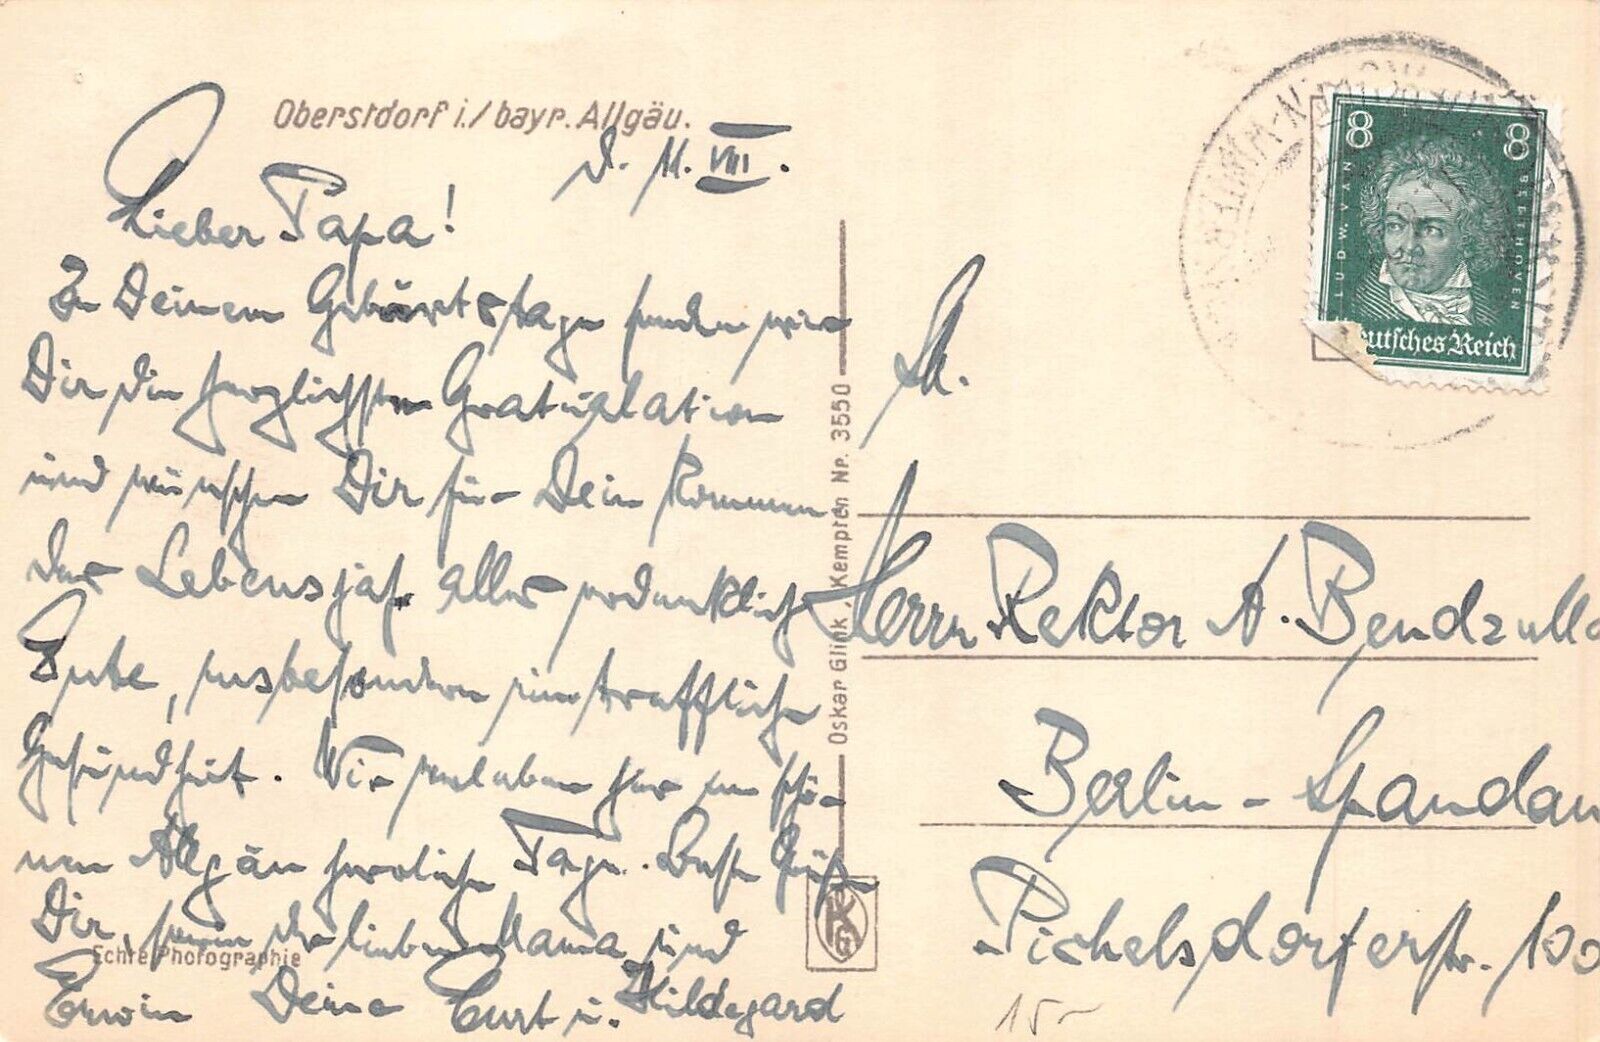 Oberstdorf i./bayr. Allgäu.
d. 11. VIII.
Lieber Papa!
Zu Deinem Geburtstage senden wir
Dir die herzlichsten Gratulation
und wünschen Dir für Dein kommen
des Lebensjahr alles erdenklich
Gute, insbesondere eine treffliche
Gesundheit. Wir verleben hier im schö-
nen Allgäu herrliche Tage. Beste Grüße
Dir, sowie der lieben Mama und
Erwin Deine Curt u. Hildegard
Echte Photographie
Oskar Glink, Kempten Nr. 3550
8 8
LUDW. V. VAN BEETHOVEN
Deutsches Reich
Herrn Rektor A. Bendzulla
Berlin-Spandau
Pichelsdorferstr. 100
15-